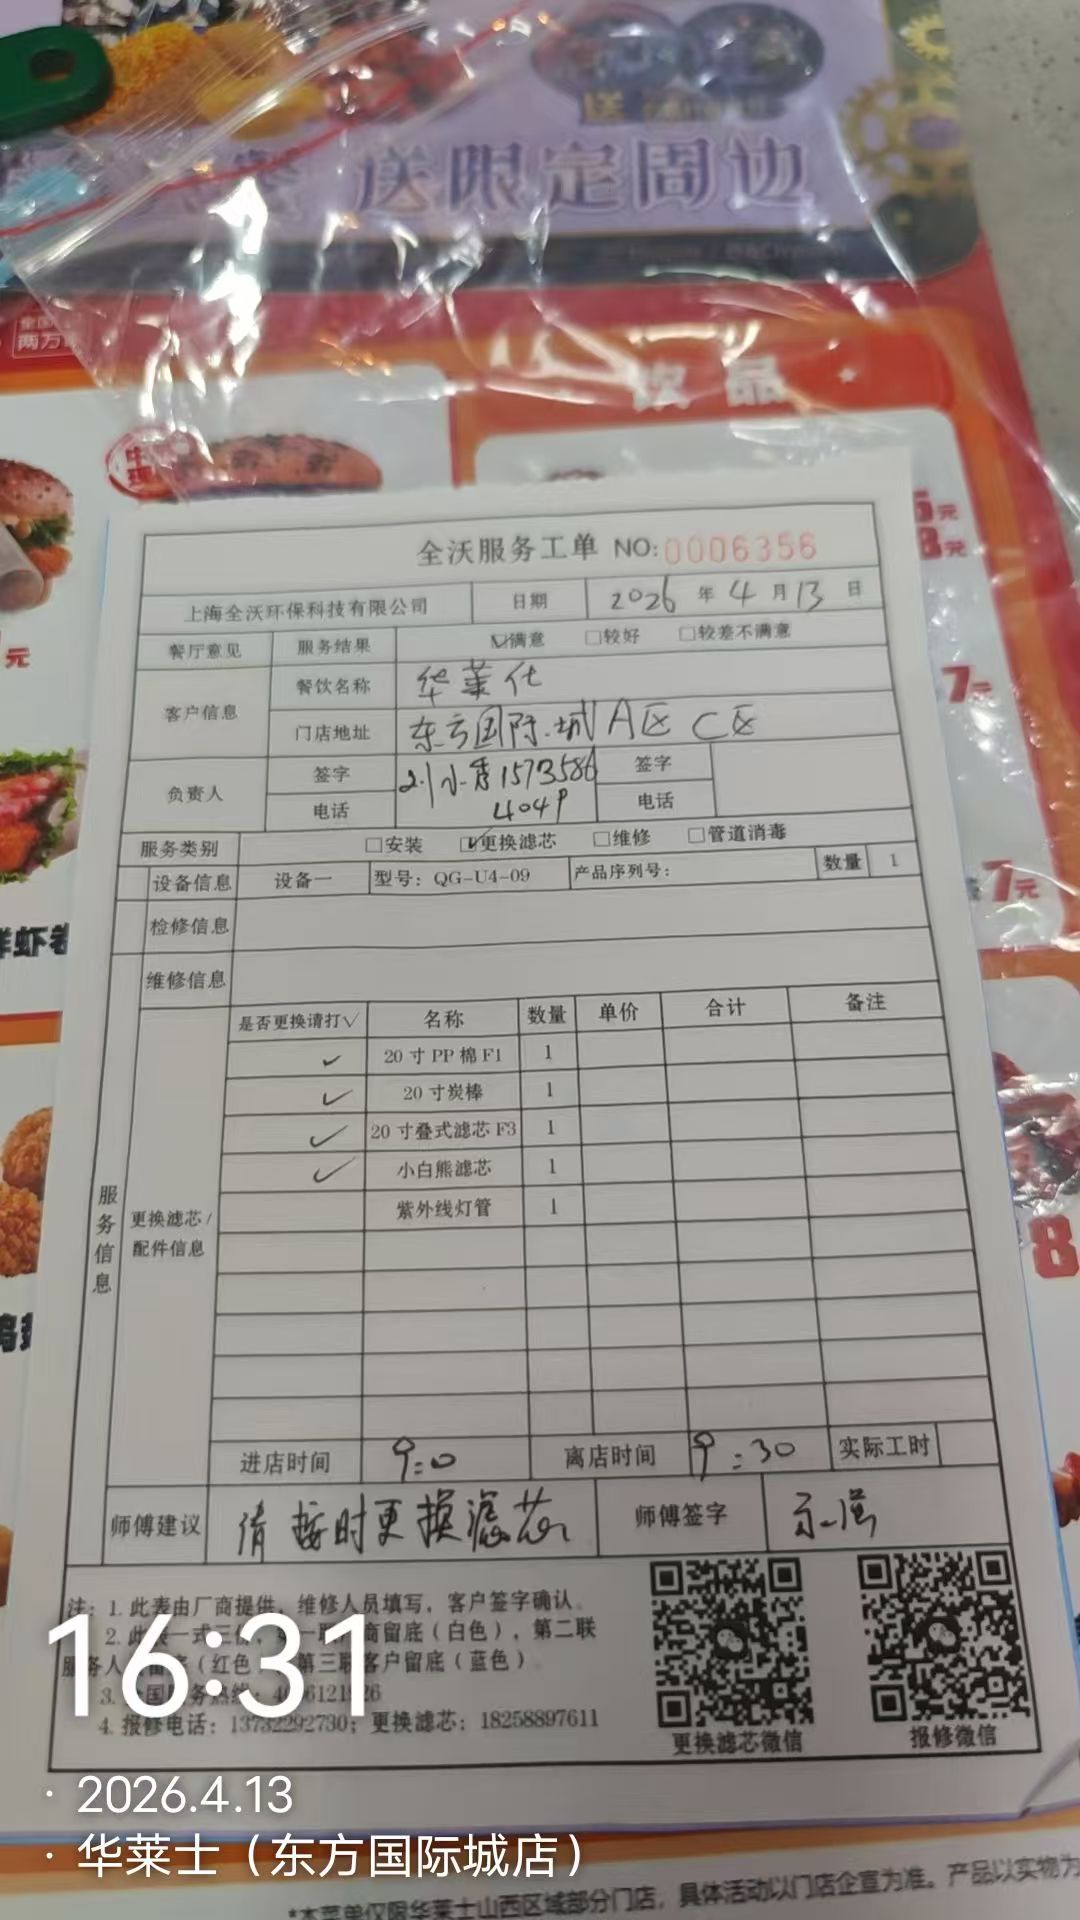 送限定周边
饮品
元
7元
7元
8
全沃服务工单 NO:0006356
上海全沃环保科技有限公司 日期 2026年4月13日
餐厅意见 服务结果 ☑满意 □较好 □较差不满意
客户信息 餐饮名称 华莱仕
门店地址 东方国际城A区C区
负责人 签字 刘小秀1573586 签字
电话 4049 电话
服务类别 □安装 ☑更换滤芯 □维修 □管道消毒
设备信息 设备一 型号：QG-U4-09 产品序列号： 数量 1
检修信息
维修信息
服务信息
更换滤芯/
配件信息
是否更换请打√ 名称 数量 单价 合计 备注
✓ 20寸PP棉F1 1
✓ 20寸炭棒 1
✓ 20寸叠式滤芯F3 1
✓ 小白熊滤芯 1
紫外线灯管 1
进店时间 9:0 离店时间 9:30 实际工时
师傅建议 请按时更换滤芯 师傅签字
注：1.此表由厂商提供，维修人员填写，客户签字确认。
2.此表一式三份，第一联厂商留底（白色），第二联
服务人员留底（红色），第三联客户留底（蓝色）
3.全国服务热线：
4.报修电话：13732292730；更换滤芯：18258897611
更换滤芯微信 报修微信
16:31
· 2026.4.13
· 华莱士（东方国际城店）
*本菜单仅限华莱士山西区域部分门店，具体活动以门店企宣为准。产品以实物为